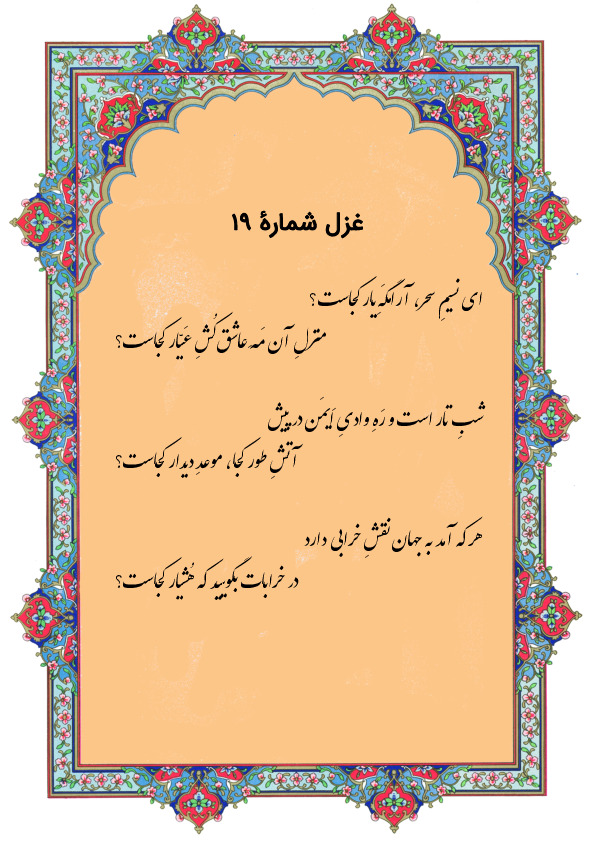 غزل شمارهٔ ۱۹
ای نسیمِ سحر، آرامگَهِ یار کجاست؟
منزلِ آن مَه عاشق‌کُشِ عَیّار کجاست؟
شبِ تار است و رَهِ وادیِ اَیمَن در پیش
آتشِ طور کجا، موعدِ دیدار کجاست؟
هر که آمد به جهان نقشِ خرابی دارد
در خرابات بگویید که هُشیار کجاست؟